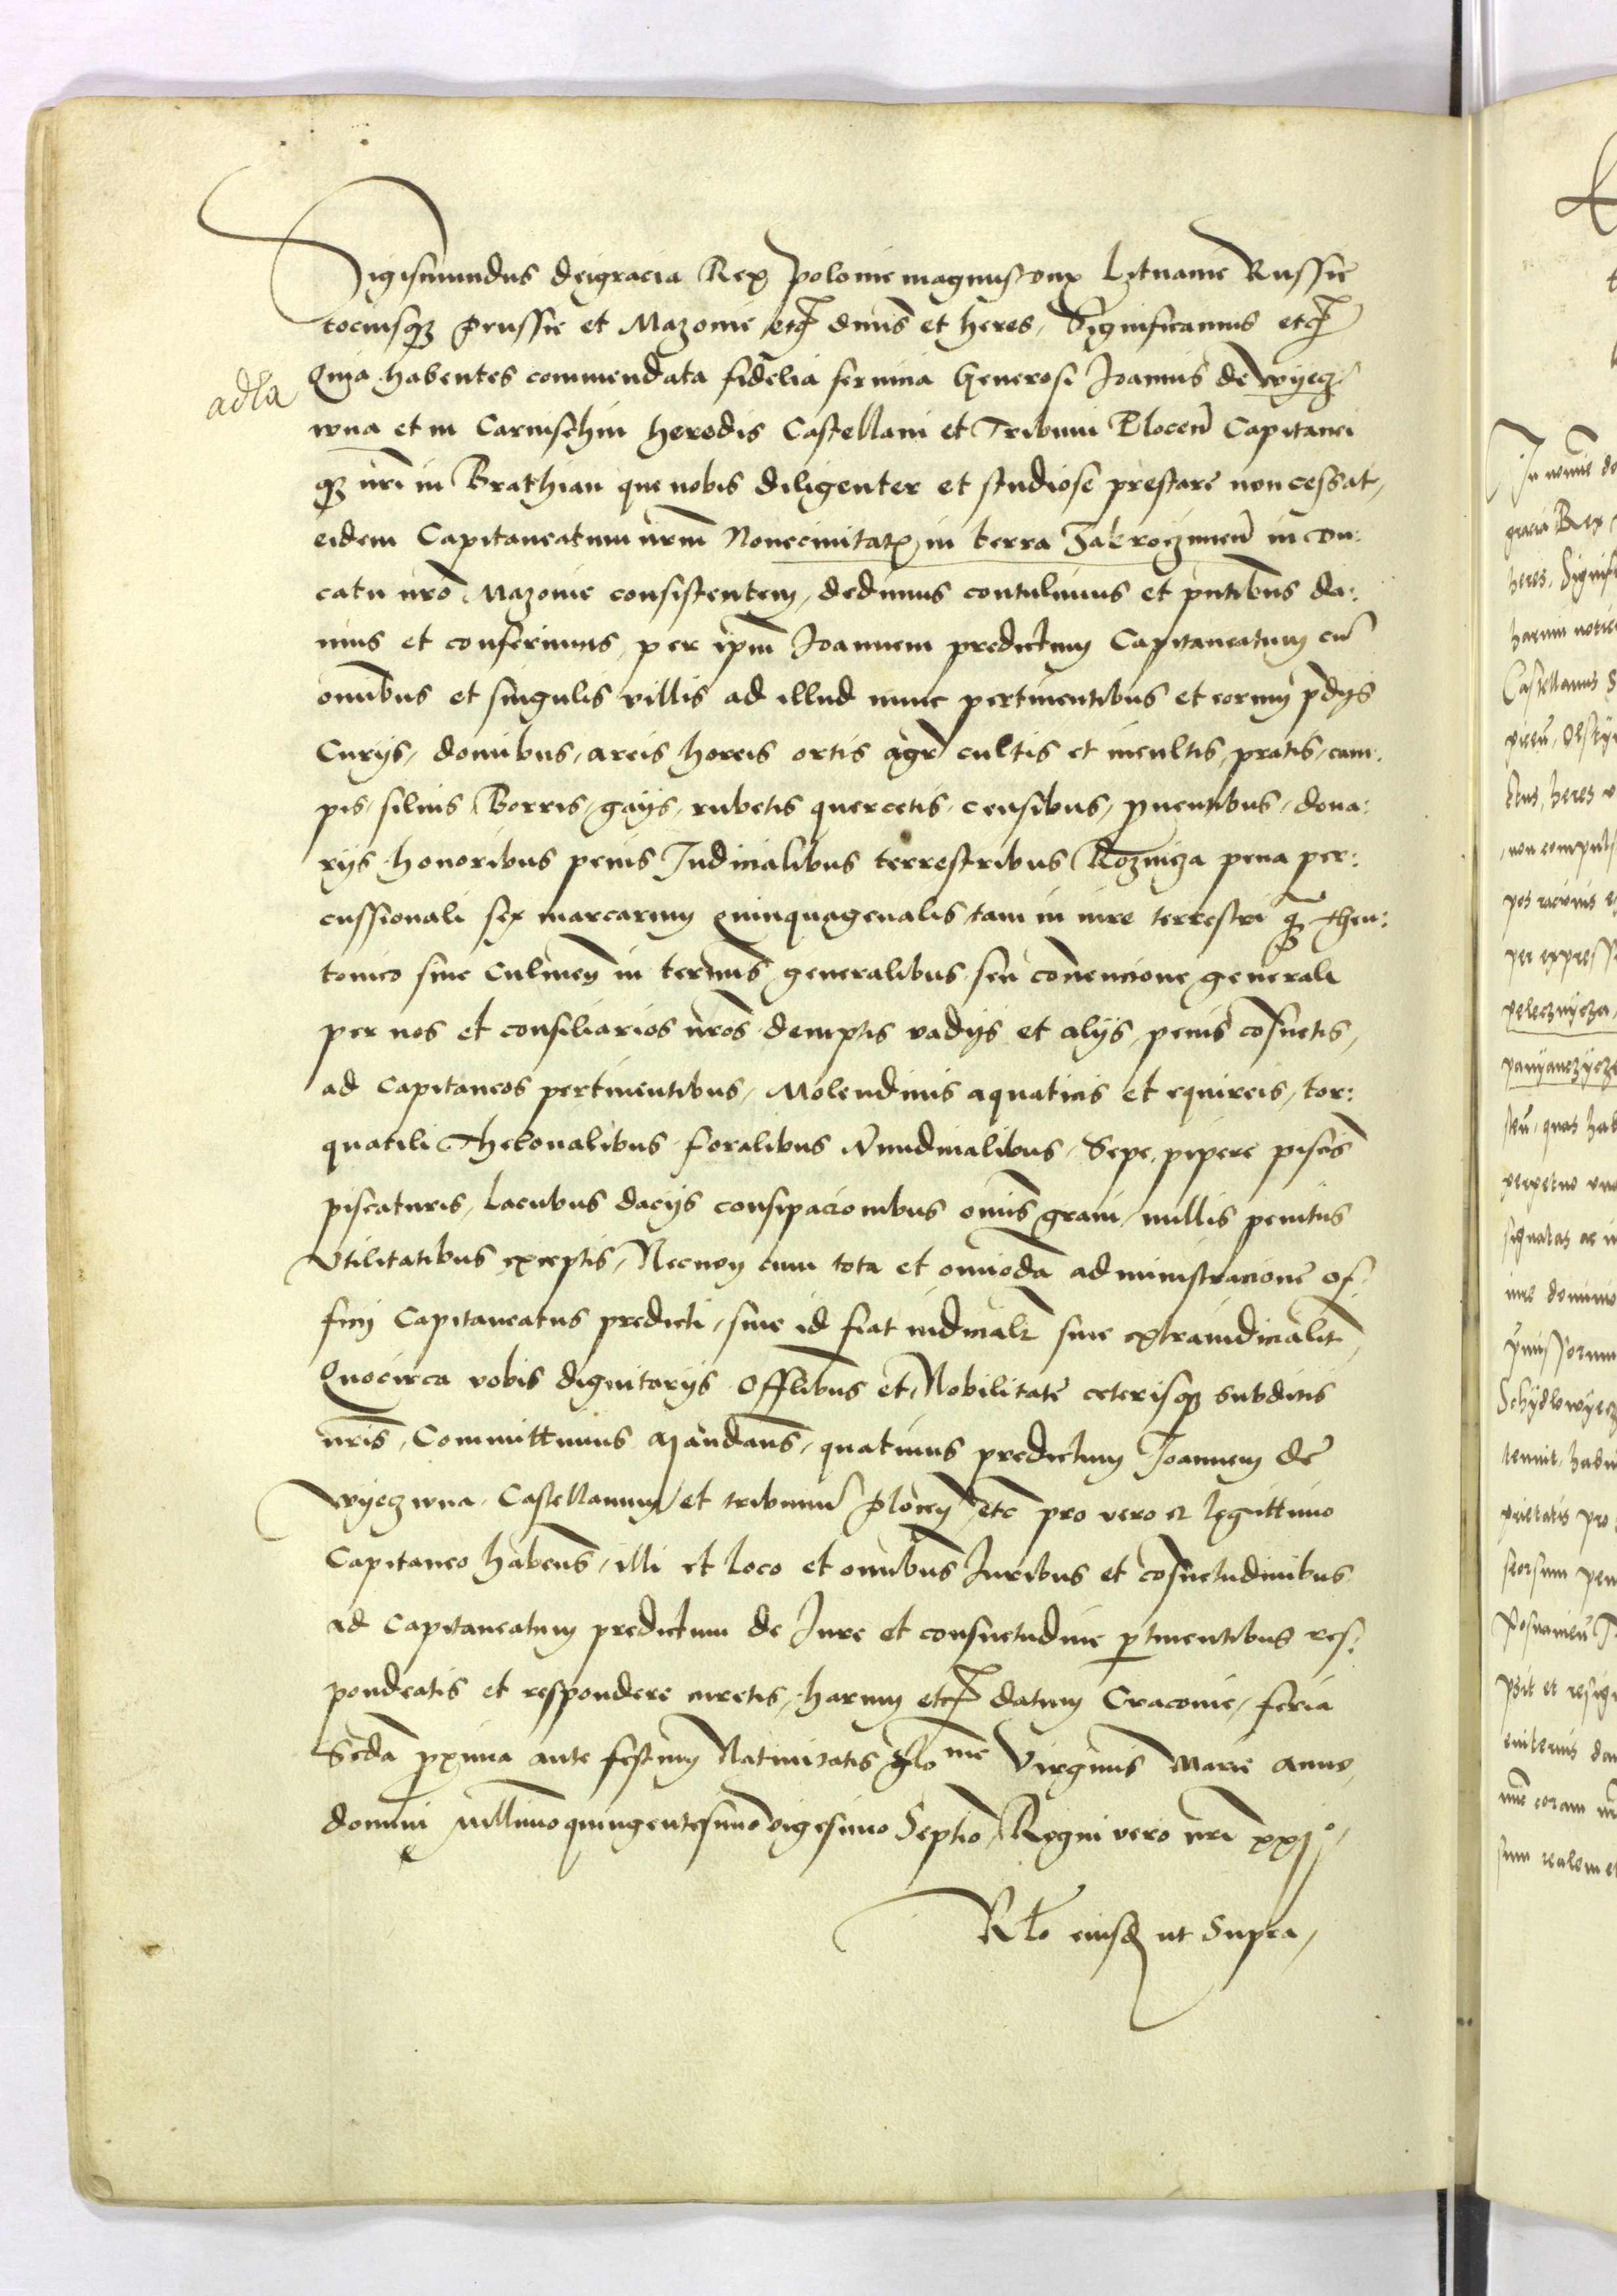 Sigismundus deigracia Rex polonie magnus dux Lituanie Russie
tociusq3 prussie et Mazouie etc dnus et heres, Significamus etc
adla
Quia habentes commendata fidelia seruicia Generosi Joannis de wyecz
wna et in Carnischin heredis Castellani et Tribuni Plocen Capitanei
q3 nri in Brathian que nobis diligenter et studiose prestare non cessat,
eidem Capitaneatum nrm Nouecivitatis, in terra Zakroczimen in du:
catu nro Mazouie consistentem, dedimus contulimus et pntibus da:
mus et conferimus, per ipm Joannem predictum Capitaneatum cu
omnibus et singulis villis ad illud nunc pertinentibus et eorum pdys
Curijs, domibus, areis horeis ortis agr cultis et incultis, pratis, cam:
pis, siluis Borris, gayis, rubetis quercetis, censibus, puentibus, dona:
rijs honoribus penis Judicialibus terrestribus Rozmicza pena per:
cussionali sex marcarum quinquagenalis tam in iure terrestri q3 theu:
tonico siue Culmen in terminis generalibus seu conuencione generali
per nos et consiliarios nros demptis vadijs et alijs, penis cosuetis,
ad Capitaneos pertinentibus, Molendinis aquaticis et equireis, tor:
quatili Thelonalibus foralibus Nundinalibus, Sepe, pipere pisces
piscaturis, Lacubus dacijs consipacionibus omnis grani, nullis penitus
Vtilitatibus exceptis, Necnon cum tota et omnioda administracione of:
ficij Capitaneatus predicti, siue id fiat iudicialr siue extraiudicialit,
Quocirca vobis dignitarijs Offlibus et Nobilitate ceterisq3 subditis
nris, Committimus Mandans, quatinus predictum Joannem de
wyeczwna, Castellanum et tribunum plocen etc pro vero et legittimo
Capitaneo habens, illi et loco et omnibus Juribus et cosuetudinibus
ad Capitaneatum predictum de Jure et consuetudine ptinentibus res:
pondeatis et respondere curetis, harum etc datum Cracouie, feria
Scda pxima ante festum Natiuitatis Glo me Virginis Marie anno
domini Millimo quingentesimo vigesimo Septio, Regni vero nri xxjo,
Rlo eiusd ut Supra,